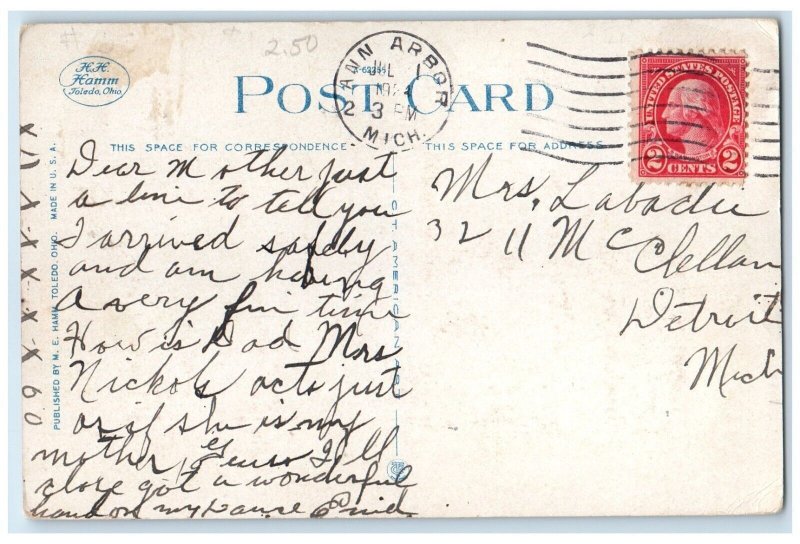 2.50
H.H.
Hamm
Toledo, Ohio.
POST CARD
ANN ARBOR
JUL
3 PM
MICH.
UNITED STATES POSTAGE
2 CENTS 2
THIS SPACE FOR CORRESPONDENCE
THIS SPACE FOR ADDRESS
Dear Mother just
a line to tell you
I arrived safely
and am having
a very fin time
How is Dad Mrs
Nickols acts just
as if she is my
mother Guess I'll
close got a wonderful
hand on my
Mrs. Labadie
3211 McClellan
Detroit
Mich
PUBLISHED BY M. E. HAMM, TOLEDO, OHIO. MADE IN U. S. A.
CT AMERICAN ART
X X X X X X